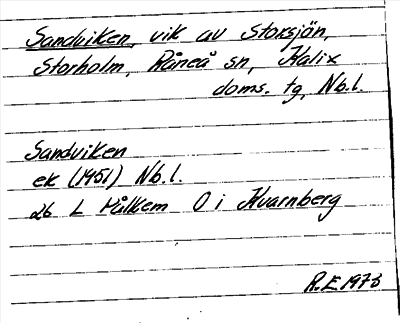 Sandviken, vik av Storsjön,
Storholm, Råneå sn, Kalix
doms. tg, Nb.l.
Sandviken
ek (1951) Nb.l.
26 L Målkem O i Kvarnberg
R.E 1973